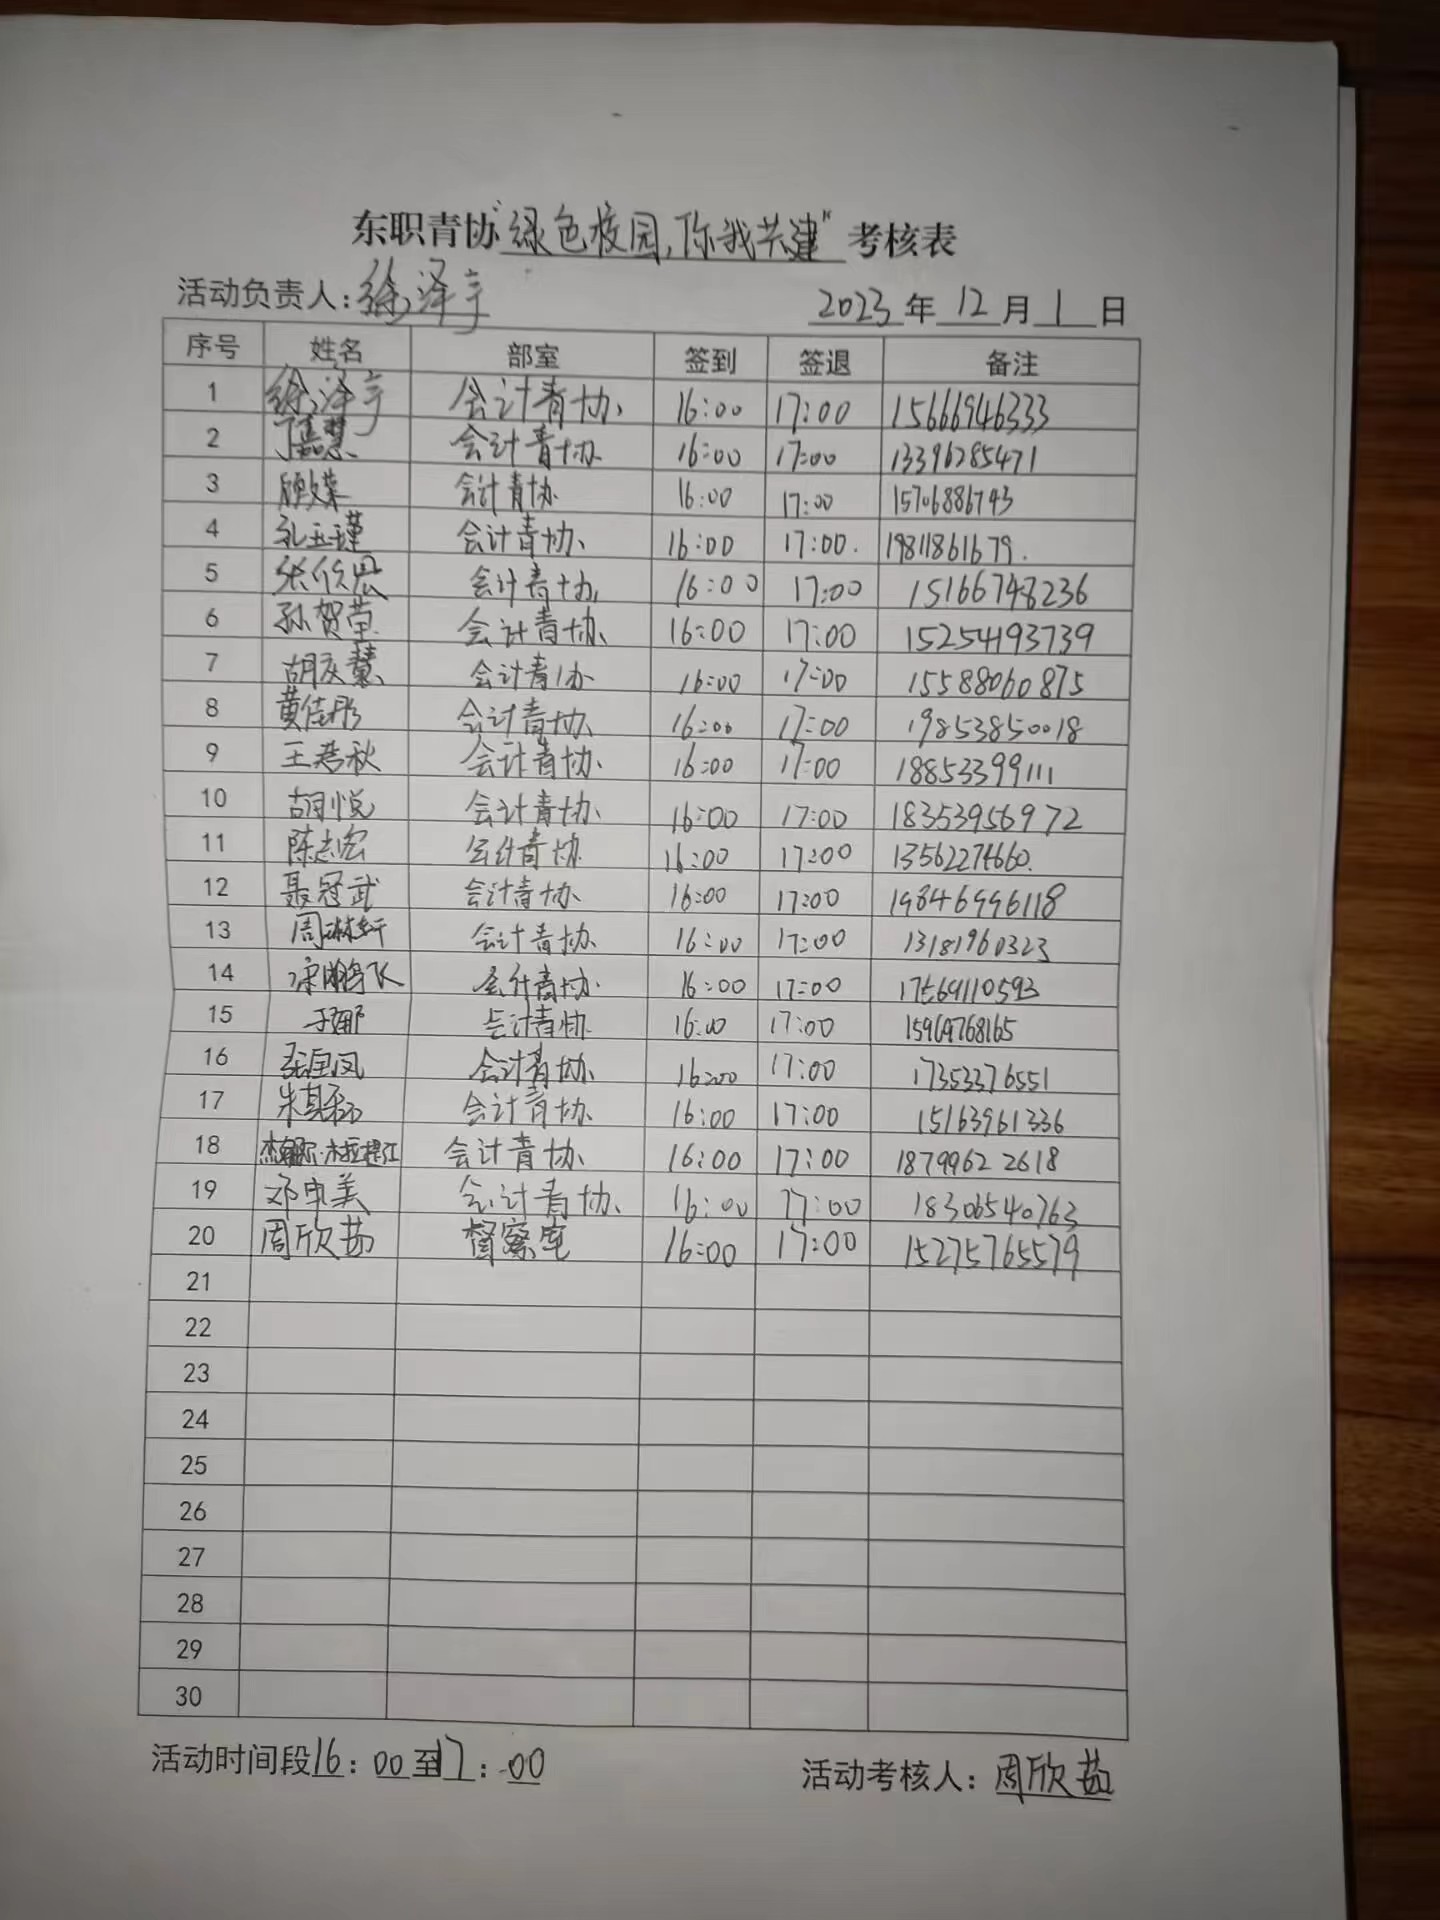 东职青协“绿色校园,你我共建”考核表
活动负责人:徐泽宇 2023年12月1日
序号 姓名 部室 签到 签退 备注
1 徐泽宇 会计青协 16:00 17:00 15666946333
2 丁嘉慧 会计青协 16:00 17:00 13396285471
3 会计青协 16:00 17:00 15706886743
4 孔玉瑾 会计青协 16:00 17:00. 19811861679.
5 张欣 会计青协 16:00 17:00 15166748236
6 孙贺莹 会计青协 16:00 17:00 15254193739
7 胡庆慧 会计青协 16:00 17:00 15588060875
8 黄佳彤 会计青协 16:00 17:00 19853850018
9 王秋 会计青协 16:00 17:00 18853399111
10 胡悦 会计青协 16:00 17:00 18353956972
11 陈志宏 会计青协 16:00 17:00
12 聂冠武 会计青协 16:00 17:00 19846996118
13 周琳轩 会计青协 16:00 17:00 13181960323
14 宋鹏飞 会计青协 16:00 17:00
15 于娜 会计青协 16:00 17:00 15969768165
16 张凤 会计青协 16:00 17:00 17353376551
17 朱其 会计青协 16:00 17:00 15163961336
18 会计青协 16:00 17:00 18799622618
19 邓申美 会计青协 16:00 17:00 18306540763
20 周欣茹 督察室 16:00 17:00 15275765579
21
22
23
24
25
26
27
28
29
30
活动时间段16:00至17:00 活动考核人:周欣茹